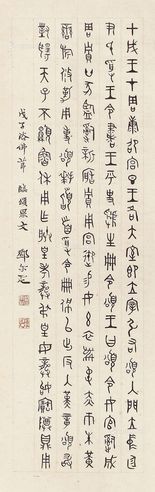 甲戌王才周康卲宮旦王各大室即立宰弘右頌入門立中廷
尹氏受王令書王乎史虢生冊令頌王曰頌令女官𤔲成
周貯廿家監𤔲新造貯用宮御易女玄衣黹屯赤市朱黃
䜌旂攸勒用事頌拜𩒨首受令冊佩以出反入堇章頌敢
對揚天子不顯魯休用乍朕皇考龏叔皇母龏姒寶尊鼎用
臨頌鼎文
鄧爾疋